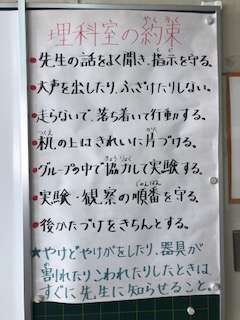 理科室の約束
やくそく
●先生の話をよく聞き、指示を守る。
しじ
●大声を出したり、ふざけたりしない。
●走らないで、落ち着いて行動する。
つくえ かた
●机の上はきれいに片づける。
きょうりょく
●グループの中で協力して実験する。
じゅんばん
●実験・観察の順番を守る。
●後かたづけをきちんとする。
★やけどやけがをしたり、器具が
割れたりこわれたりしたときは、
すぐに先生に知らせること。